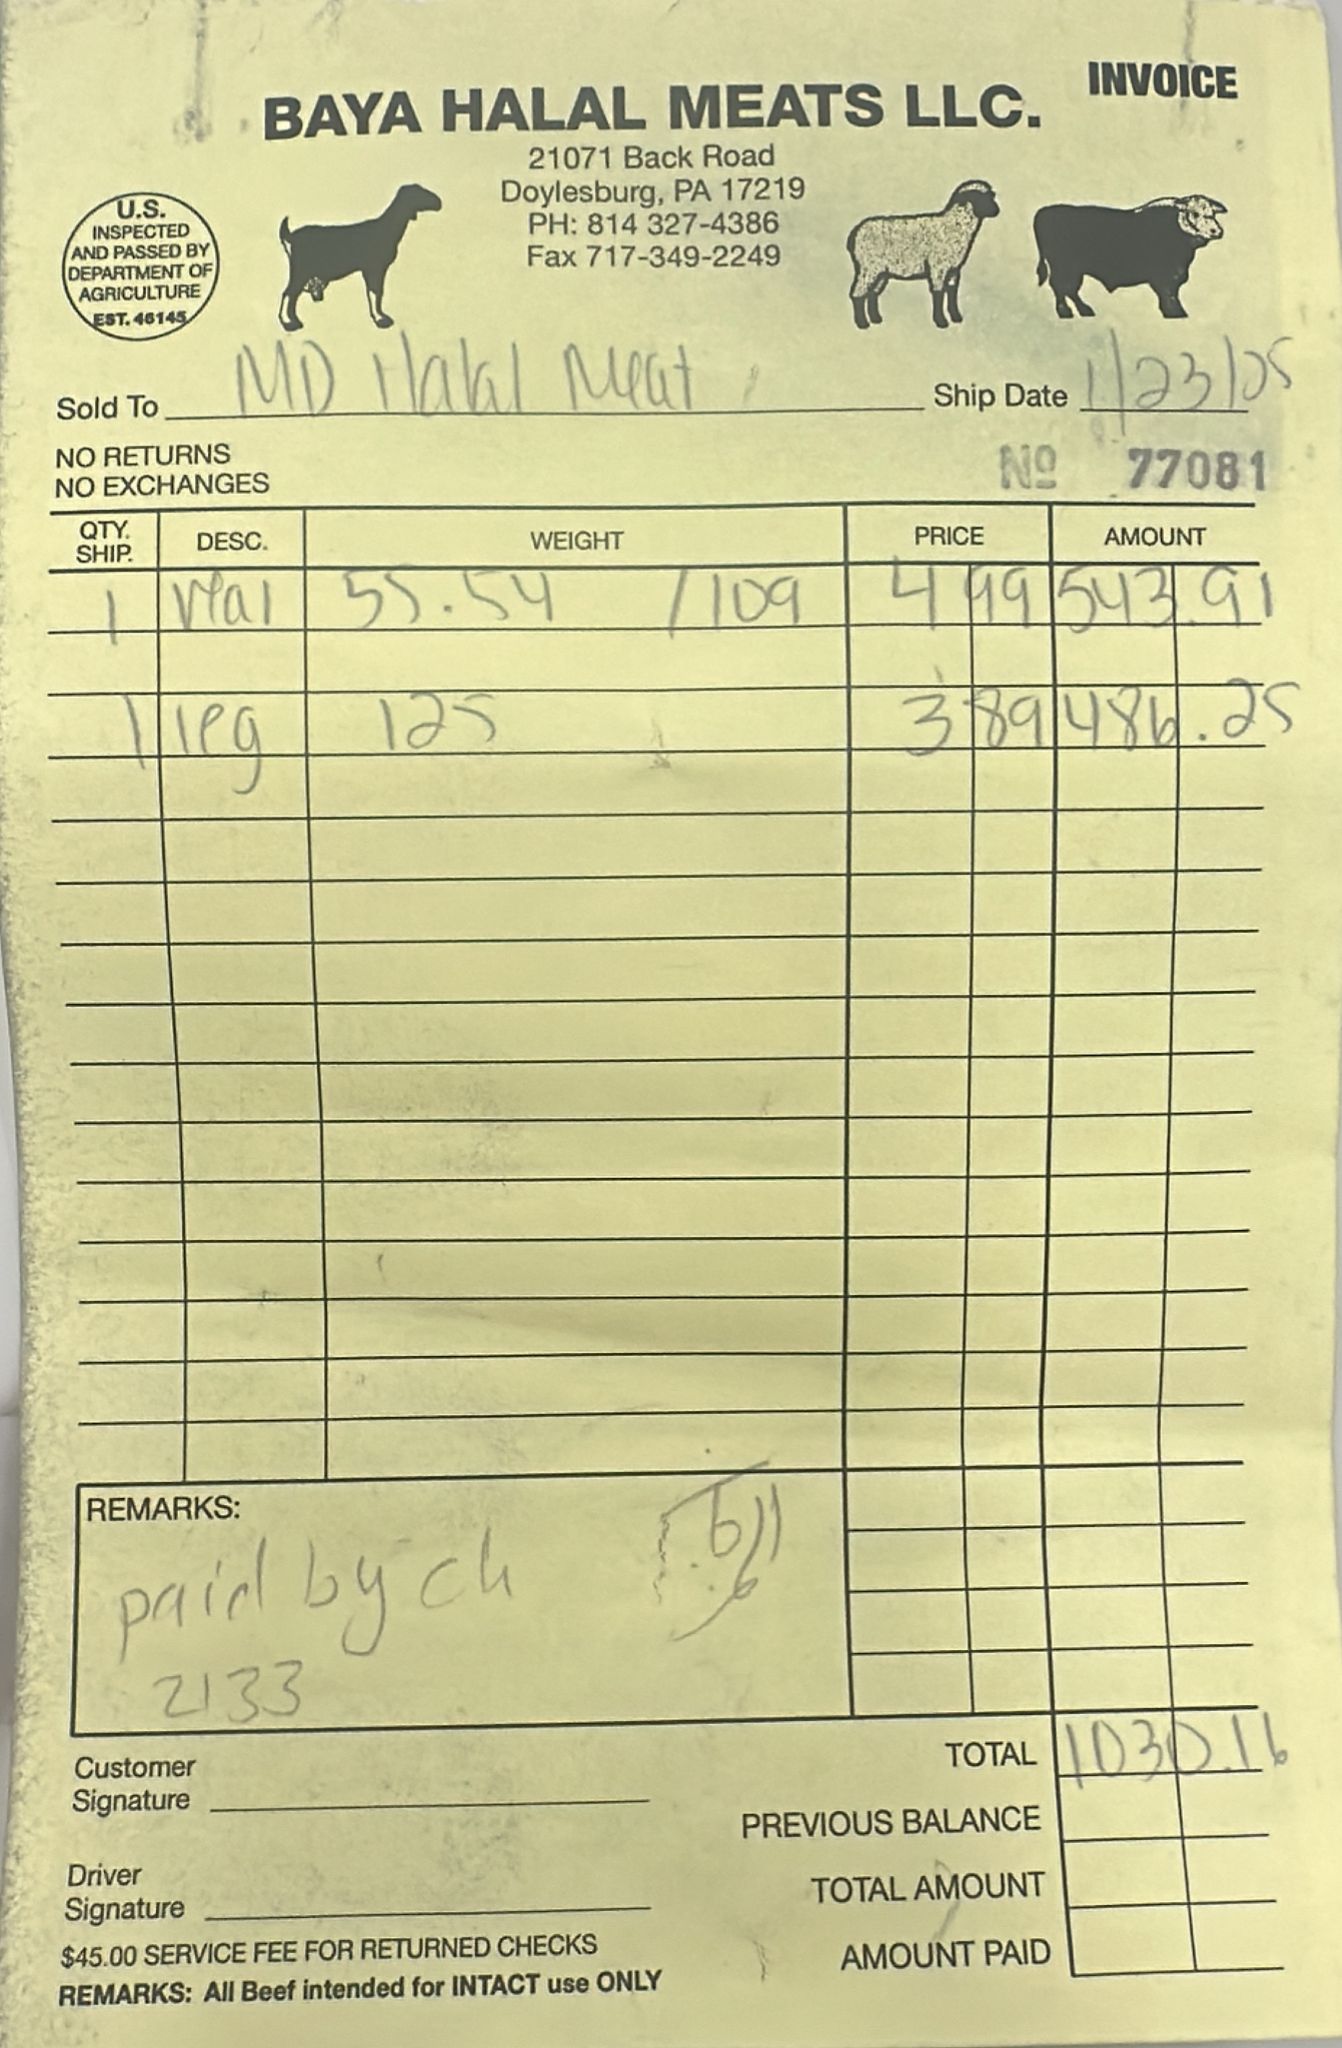 INVOICE
BAYA HALAL MEATS LLC.
21071 Back Road
Doylesburg, PA 17219
PH: 814 327-4386
Fax 717-349-2249
U.S.
INSPECTED
AND PASSED BY
DEPARTMENT OF
AGRICULTURE
EST. 46145
Sold To MD Halal Meat Ship Date 1/23/25
NO RETURNS
NO EXCHANGES
No 77081
QTY. SHIP. DESC. WEIGHT PRICE AMOUNT
1 veal 55.54 /109 4 99 543.91
1 leg 125 3 89 486.25
REMARKS:
paid by ch
2133
TOTAL 1030.16
Customer
Signature
PREVIOUS BALANCE
Driver
Signature
TOTAL AMOUNT
AMOUNT PAID
$45.00 SERVICE FEE FOR RETURNED CHECKS
REMARKS: All Beef intended for INTACT use ONLY